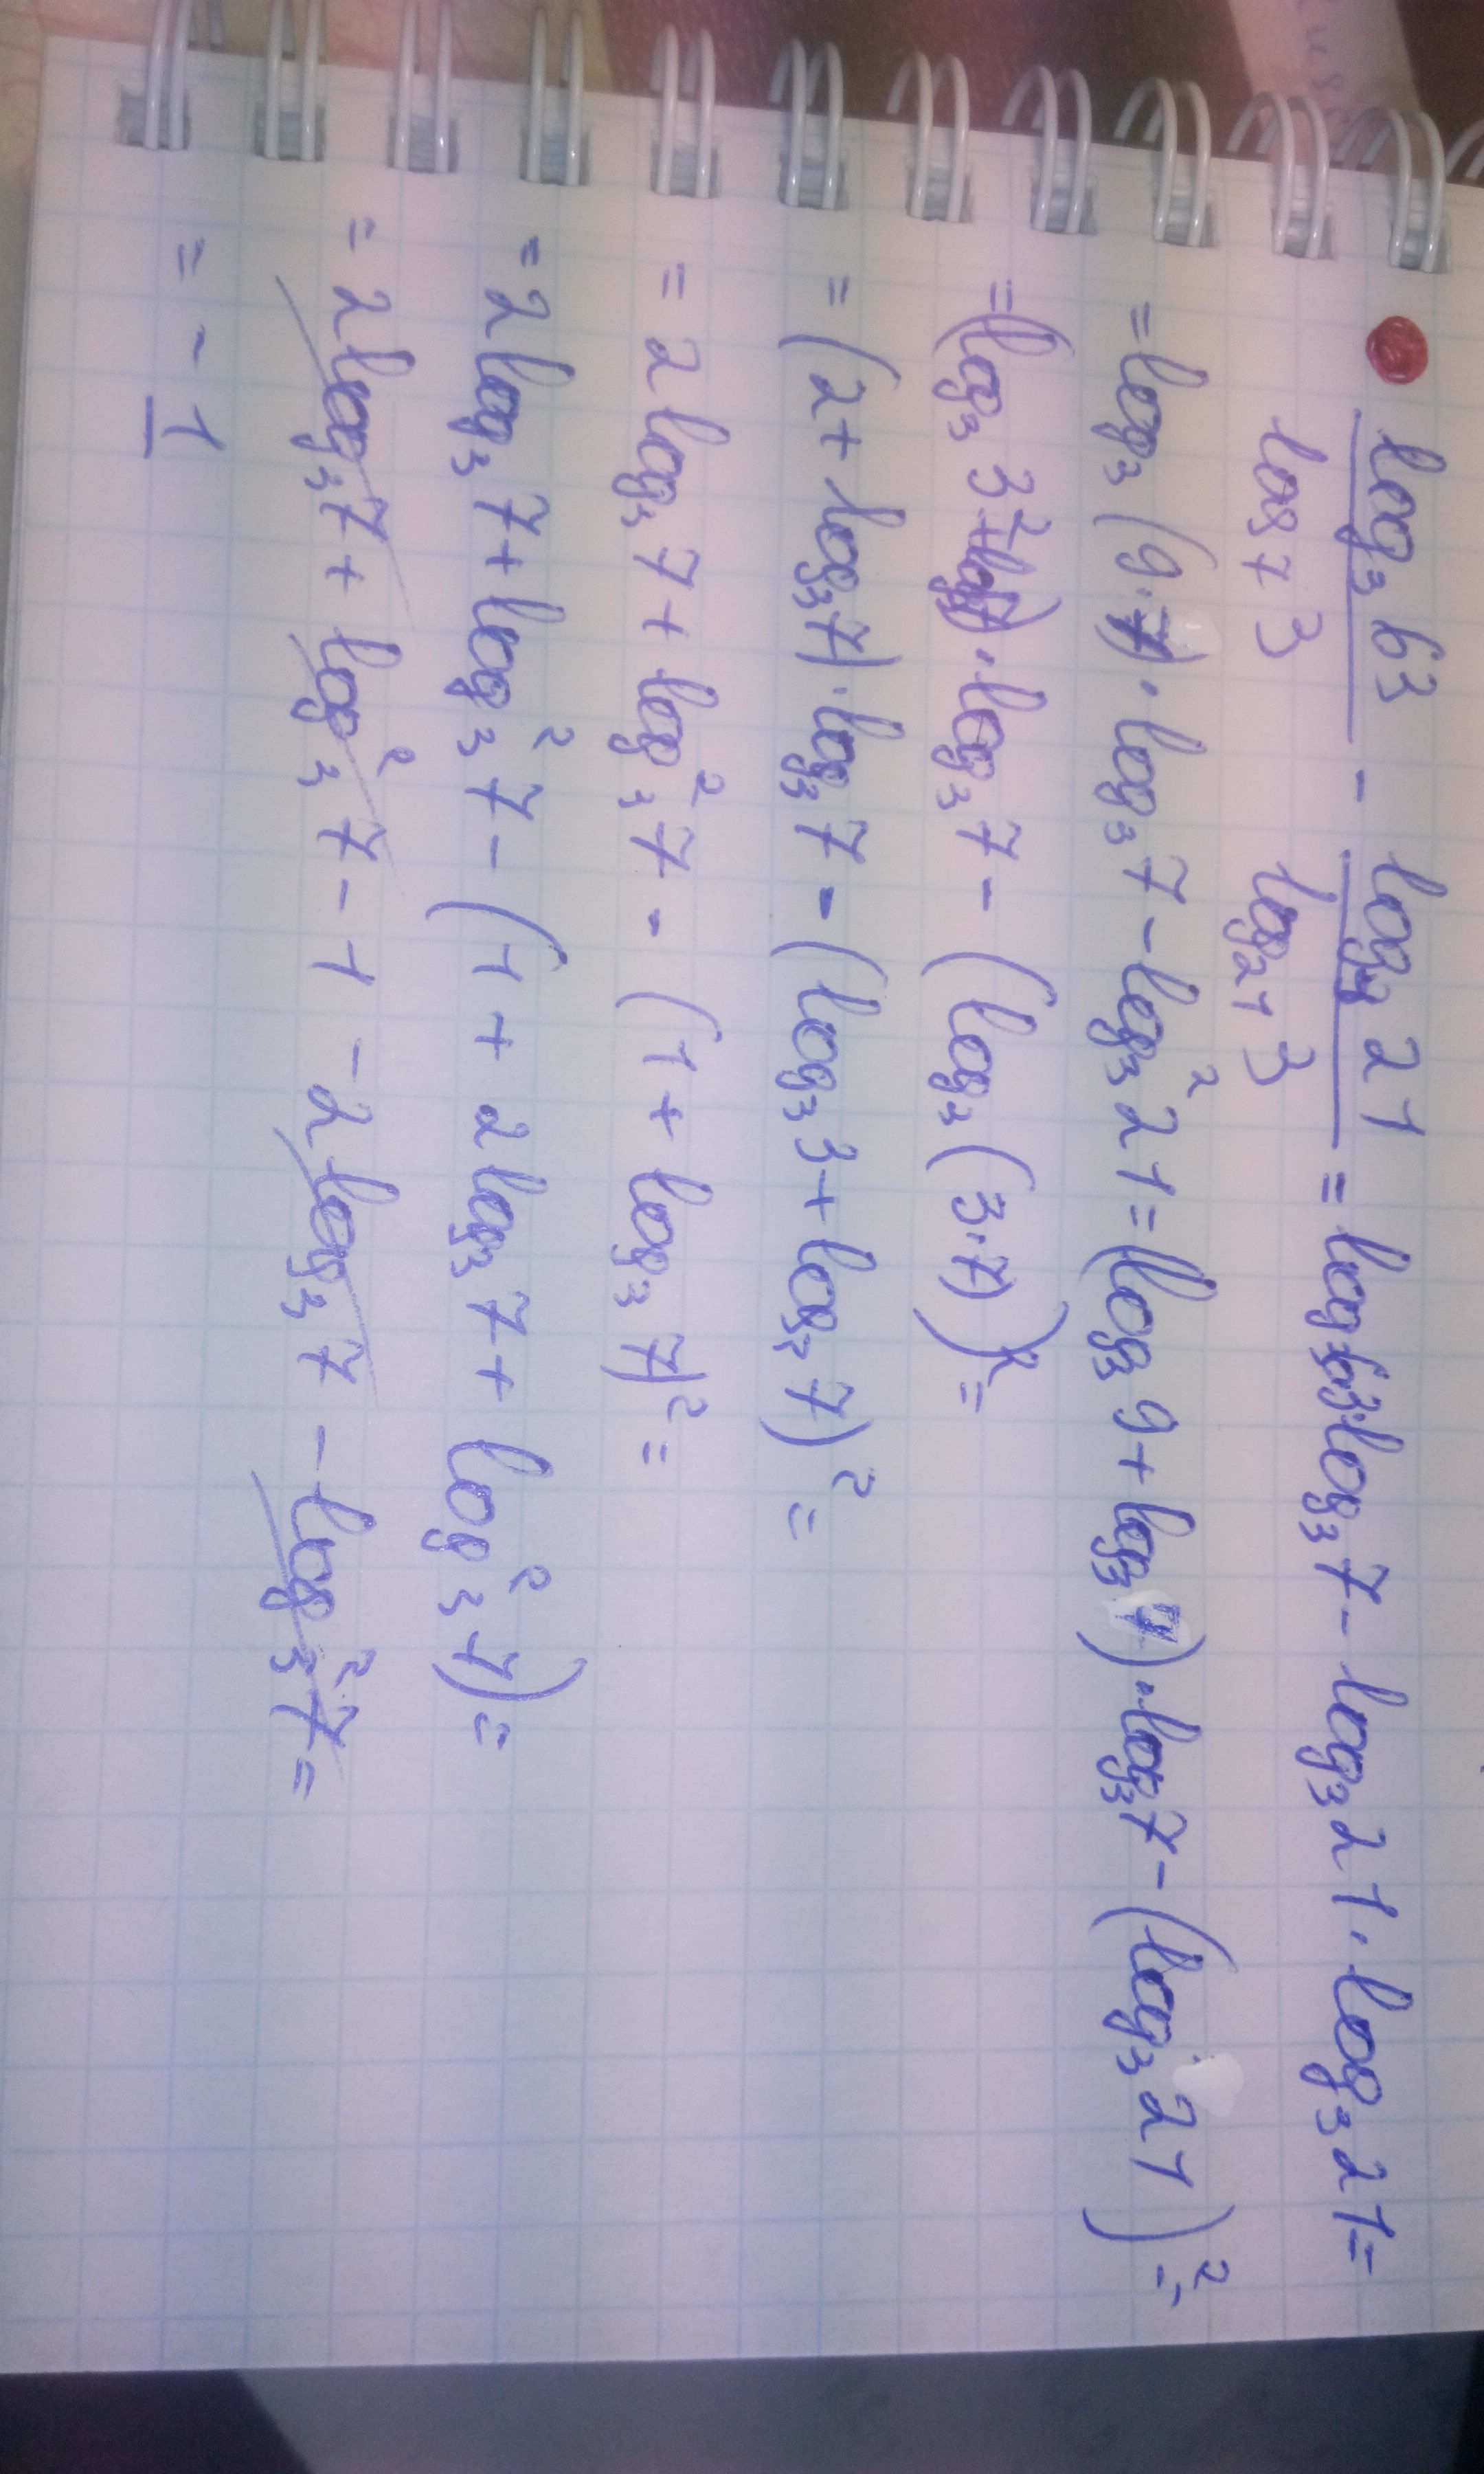 log₃63/log₇3 - log₃21/log₂₁3 = log₃63·log₃7 - log₃21·log₃21 =
= log₃(9·7)·log₃7 - log₃²21 = (log₃9 + log₃7)·log₃7 - (log₃21)² =
= (log₃3² + log₃7)·log₃7 - (log₃(3·7))² =
= (2 + log₃7)·log₃7 - (log₃3 + log₃7)² =
= 2log₃7 + log₃²7 - (1 + log₃7)² =
= 2log₃7 + log₃²7 - (1 + 2log₃7 + log₃²7) =
= 2log₃7 + log₃²7 - 1 - 2log₃7 - log₃²7 =
= -1